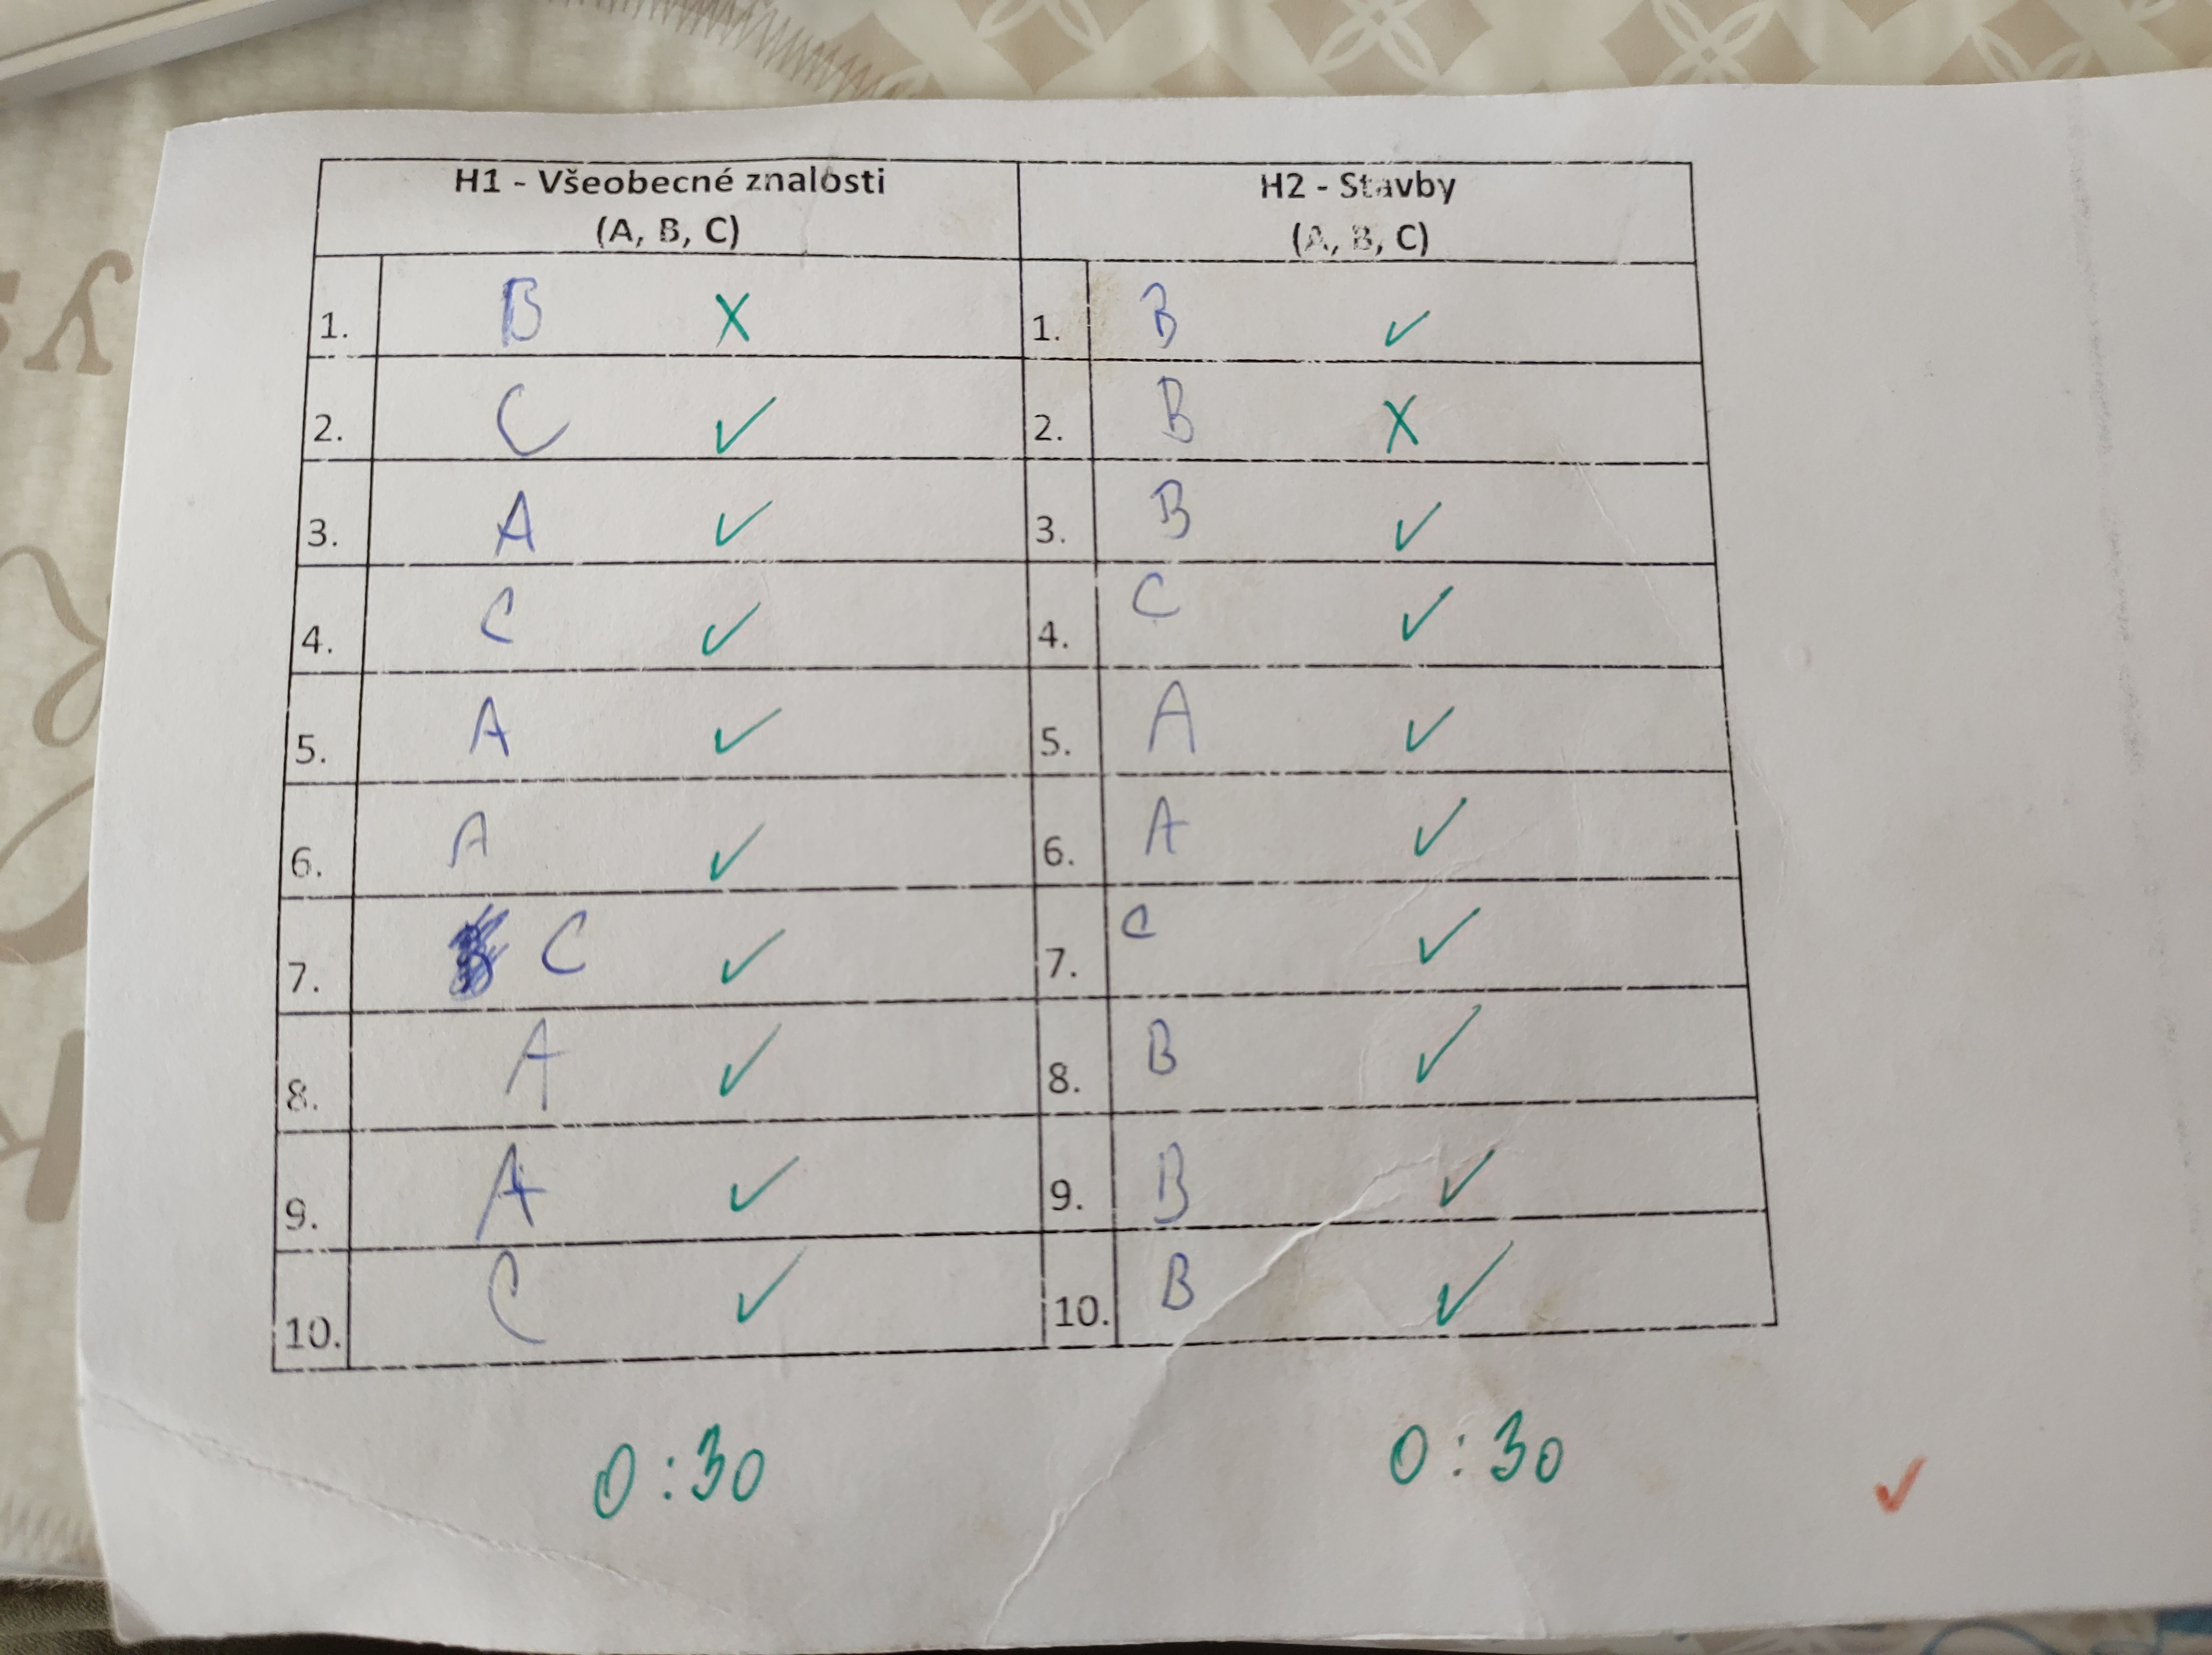 H1 - Všeobecné znalosti
(A, B, C)
H2 - Stavby
(A, B, C)
1. B X 1. B ✓
2. C ✓ 2. B X
3. A ✓ 3. B ✓
4. C ✓ 4. C ✓
5. A ✓ 5. A ✓
6. A ✓ 6. A ✓
7. C ✓ 7. C ✓
8. A ✓ 8. B ✓
9. A ✓ 9. B ✓
10. C ✓ 10. B ✓
0:30 0:30 ✓